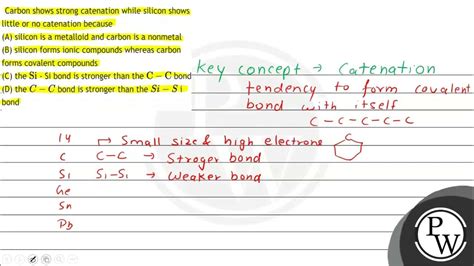 Carbon shows strong catenation while silicon shows
little or no catenation because
(A) silicon is a metalloid and carbon is a nonmetal
(B) silicon forms ionic compounds whereas carbon
forms covalent compounds
(C) the Si - Si bond is stronger than the C – C bond
(D) the C – C bond is stronger than the Si – S i
bond
Key concept → Catenation
tendency to form covalent
bond with itself
C – C – C – C – C
C
14 → Small size & high electrone
C C – C → Stroger bond
Si Si – Si → Weaker bond
Ge
Sn
Pb
P
W